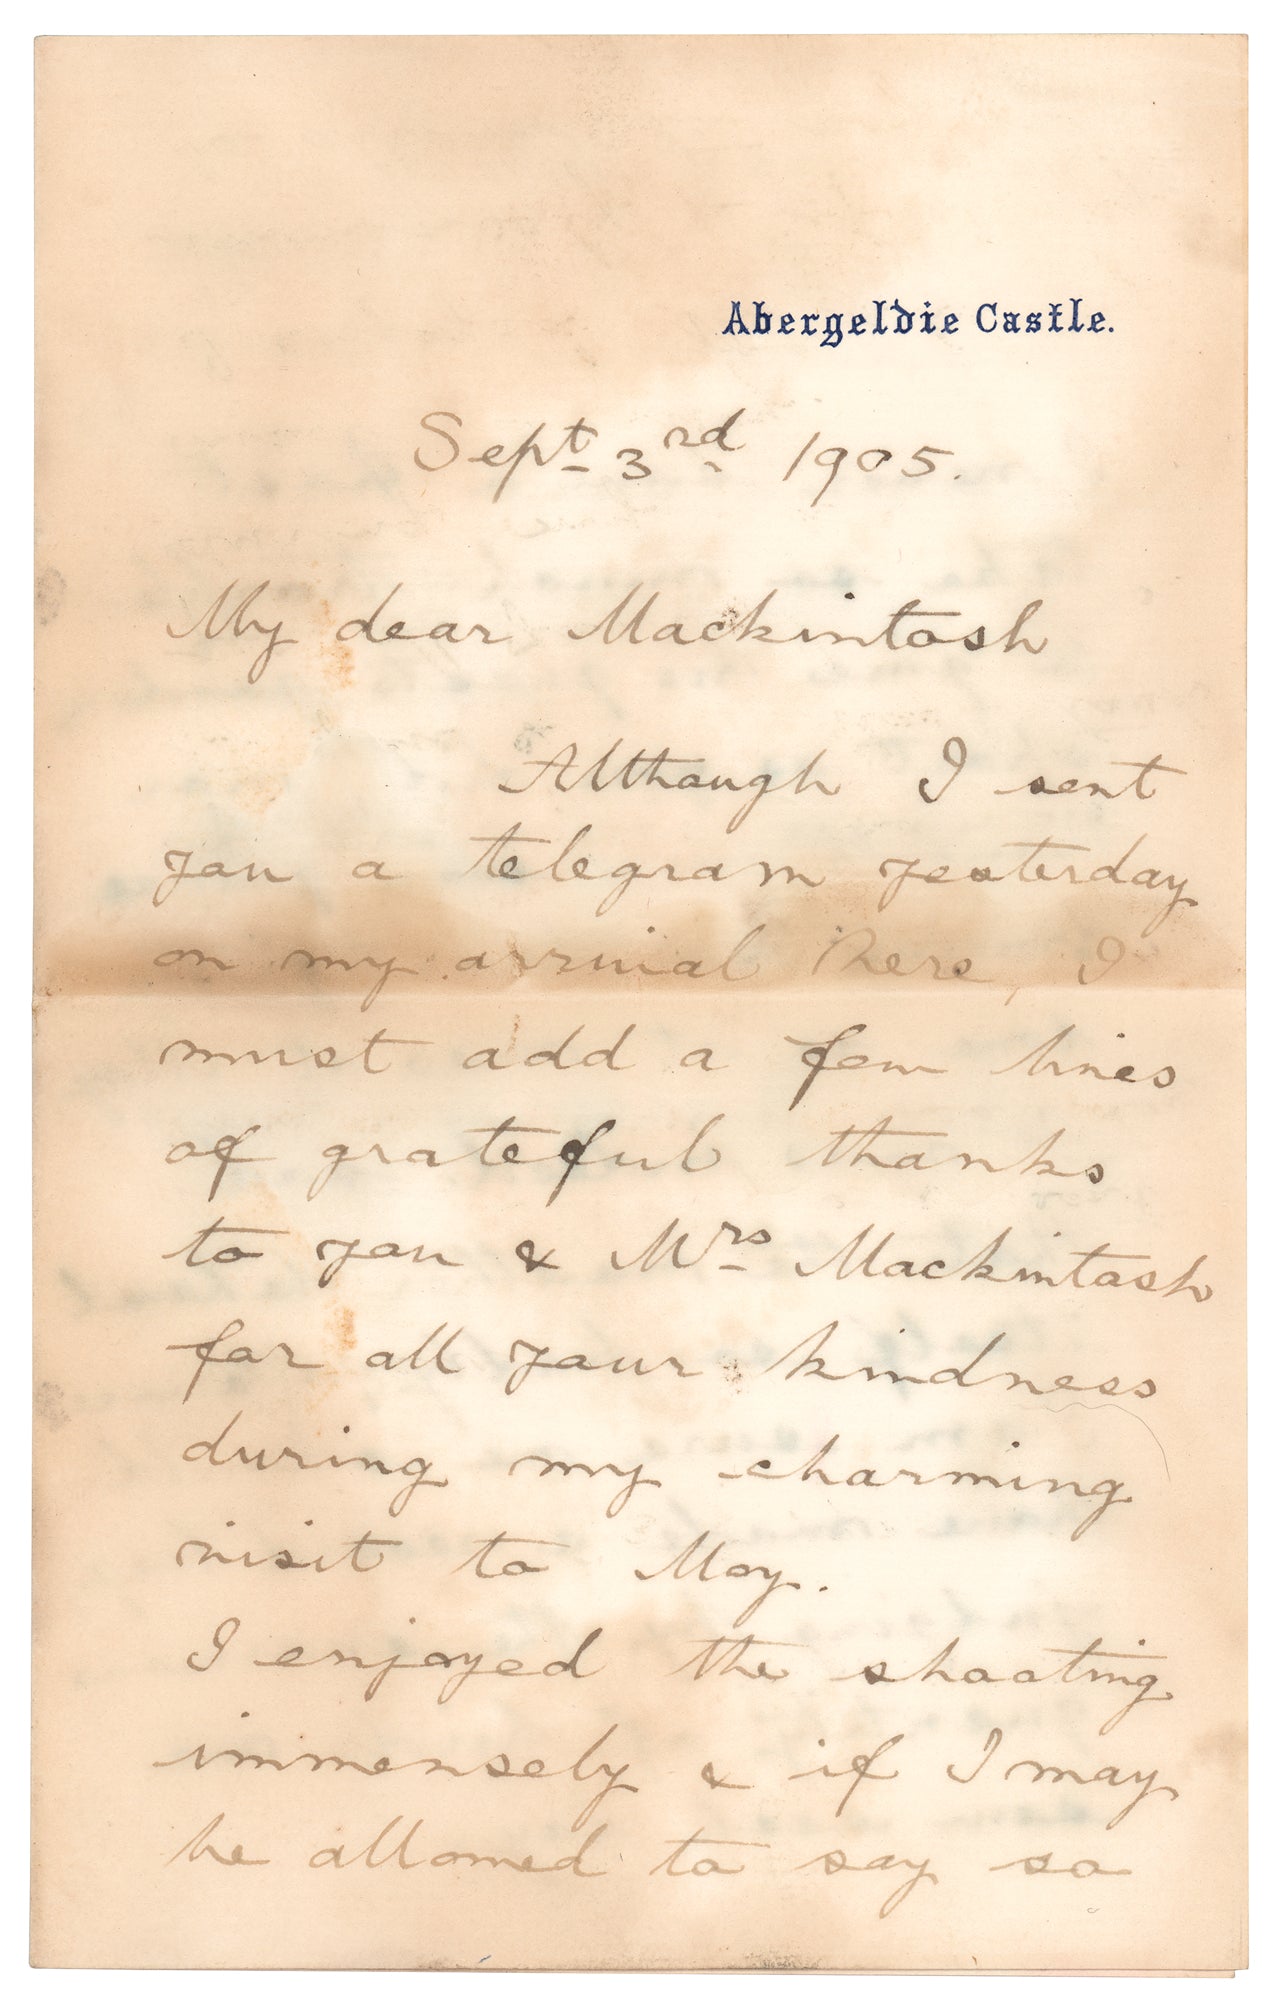 Abergeldie Castle.
Sept 3rd 1905.
My dear Mackintosh
Although I sent
you a telegram yesterday
on my arrival here, I
must add a few lines
of grateful thanks
to you & Mrs Mackintosh
for all your kindness
during my charming
visit to Moy.
I enjoyed the shooting
immensely & if I may
be allowed to say so